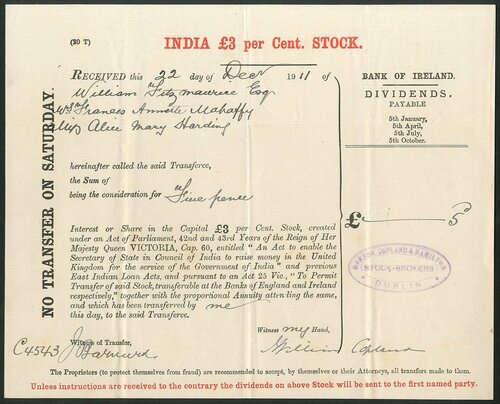 (20 T)
INDIA £3 per Cent. STOCK.
NO TRANSFER ON SATURDAY.
RECEIVED this 22 day of Decr 1911 of
William Fitzmaurice Esq
Frances Annette Mahaffy
Alice Mary Harding
hereinafter called the said Transferee,
the Sum of
being the consideration for Five pence
Interest or Share in the Capital £3 per Cent. Stock, created
under an Act of Parliament, 42nd and 43rd Years of the Reign of Her
Majesty Queen VICTORIA, Cap. 60, entitled "An Act to enable the
Secretary of State in Council of India to raise money in the
United Kingdom for the service of the Government of India" and previous
East Indian Loan Acts, and pursuant to an Act 25 Vic., "To Permit
Transfer of said Stock, transferable at the Banks of England and Ireland
respectively," together with the proportional Annuity attending the same,
and which has been transferred by me
this day, to the said Transferee.
Witness my Hand,
Witness of Transfer,
C4543
William Copland
BANK OF IRELAND.
DIVIDENDS.
PAYABLE
5th January,
5th April,
5th July,
5th October.
£ 5
COPLAND & HAMILTON
STOCK-BROKERS
DUBLIN
The Proprietors (to protect themselves from fraud) are recommended to accept, by themselves or their Attorneys, all transfers made to them.
Unless instructions are received to the contrary the dividends on above Stock will be sent to the first named party.